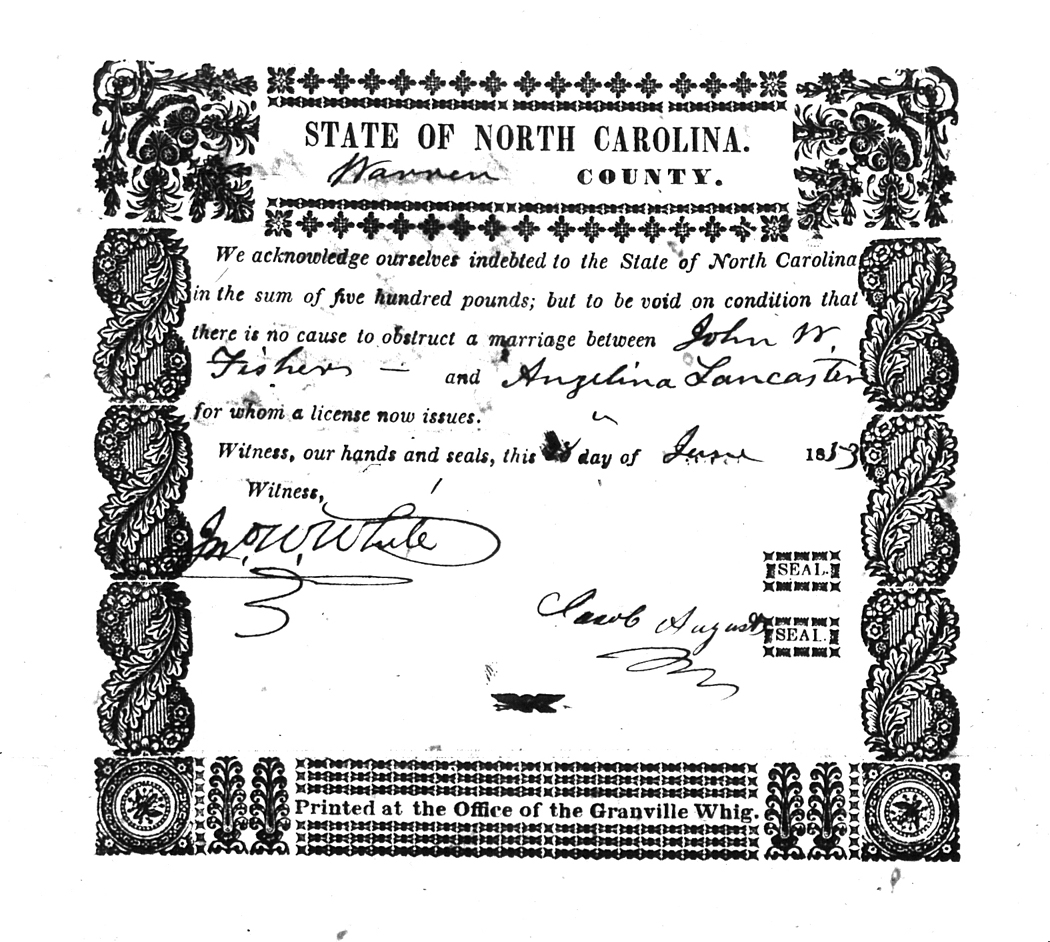 STATE OF NORTH CAROLINA.
Warren COUNTY.
We acknowledge ourselves indebted to the State of North Carolina
in the sum of five hundred pounds; but to be void on condition that
there is no cause to obstruct a marriage between John W.
Fisher — and Angelina Lancaster
for whom a license now issues.
Witness, our hands and seals, this day of June 1853
Witness,
Jno. W. White
SEAL.
Jacob August SEAL.
Printed at the Office of the Granville Whig.